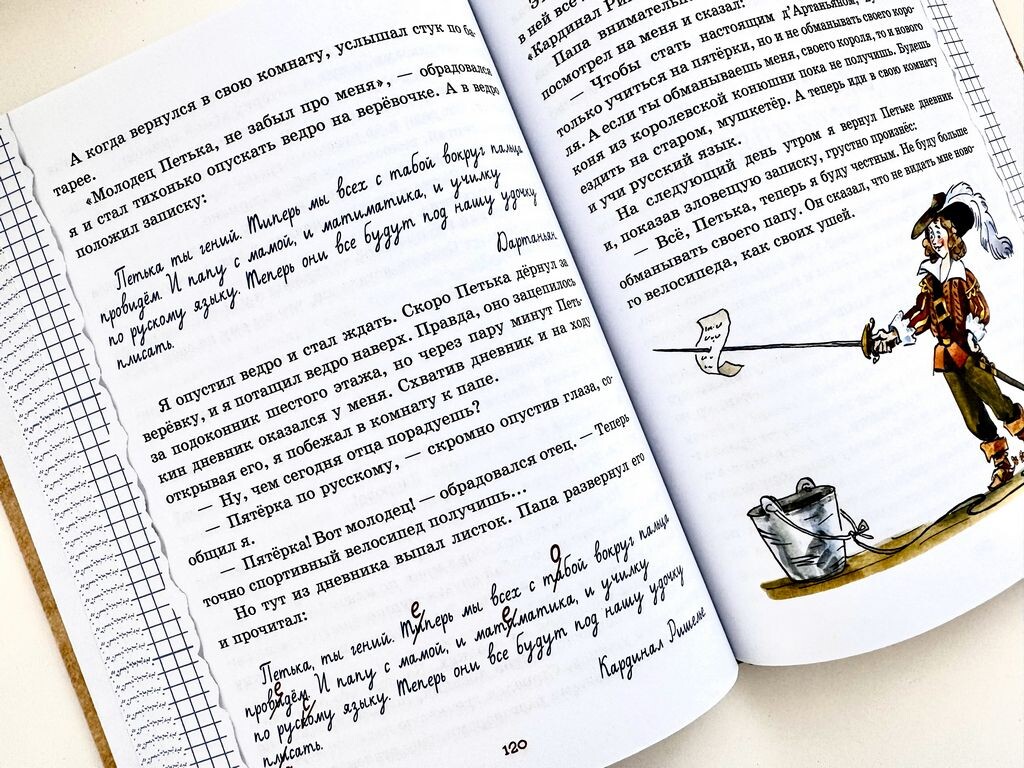 А когда вернулся в свою комнату, услышал стук по ба-
тарее.
«Молодец Петька, не забыл про меня», — обрадовался
я и стал тихонько опускать ведро на верёвочке. А в ведро
положил записку:
Петька ты гений. Типерь мы всех с табой вокруг пальца
провидём. И папу с мамой, и матиматика, и училку
по рускому языку. Теперь они все будут под нашу удочку
плисать.
Дартаньян
Я опустил ведро и стал ждать. Скоро Петька дёрнул за
верёвку, и я потащил ведро наверх. Правда, оно зацепилось
за подоконник шестого этажа, но через пару минут Петь-
кин дневник оказался у меня. Схватив дневник и на ходу
открывая его, я побежал в комнату к папе.
— Ну, чем сегодня отца порадуешь?
— Пятёрка по русскому, — скромно опустив глаза, со-
общил я.
— Пятёрка! Вот молодец! — обрадовался отец. — Теперь
точно спортивный велосипед получишь...
Но тут из дневника выпал листок. Папа развернул его
и прочитал:
Петька, ты гений. Типерь мы всех с табой вокруг пальца
провидём. И папу с мамой, и матиматика, и училку
по рускому языку. Теперь они все будут под нашу удочку
плисать.
Кардинал Ришелье
120
в ней все
«Кардинал
Папа внимательн
посмотрел на меня и сказал:
— Чтобы стать настоящим д'Артаньяном,
только учиться на пятёрки, но и не обманывать своего коро-
ля. А если ты обманываешь меня, своего короля, то и нового
коня из королевской конюшни пока не получишь. Будешь
ездить на старом, мушкетёр. А теперь иди в свою комнату
и учи русский язык.
На следующий день утром я вернул Петьке дневник
и, показав зловещую записку, грустно произнёс:
— Всё, Петька, теперь я буду честным. Не буду больше
обманывать своего папу. Он сказал, что не видать мне ново-
го велосипеда, как своих ушей.